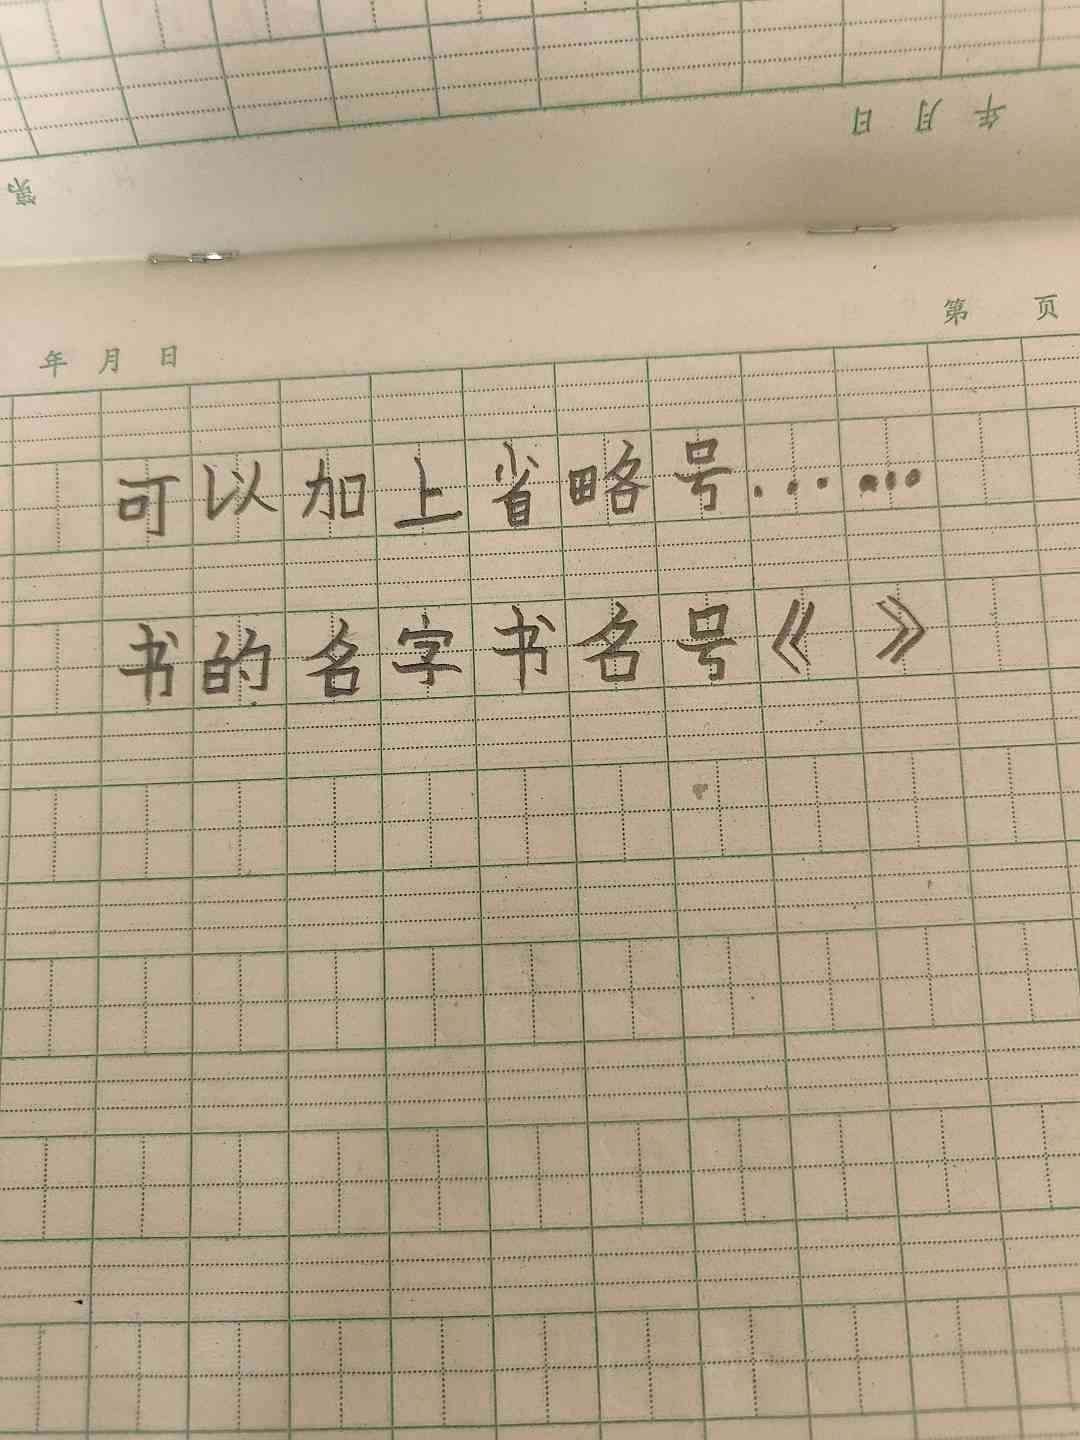 年 月 日
第
年 月 日 第 页
可以加上省略号……
书的名字书名号《 》